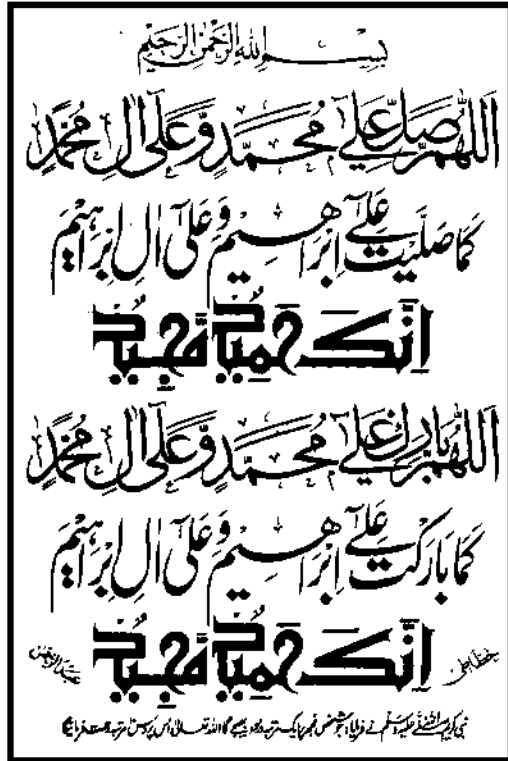 بِسْمِ اللهِ الرَّحْمٰنِ الرَّحِيْمِ
اَللّٰهُمَّ صَلِّ عَلٰى مُحَمَّدٍ وَّعَلٰٓى اٰلِ مُحَمَّدٍ
كَمَا صَلَّيْتَ عَلٰٓى اِبْرَاهِيْمَ وَعَلٰٓى اٰلِ اِبْرَاهِيْمَ
اِنَّكَ حَمِيْدٌ مَّجِيْدٌ
اَللّٰهُمَّ بَارِكْ عَلٰى مُحَمَّدٍ وَّعَلٰٓى اٰلِ مُحَمَّدٍ
كَمَا بَارَكْتَ عَلٰٓى اِبْرَاهِيْمَ وَعَلٰٓى اٰلِ اِبْرَاهِيْمَ
اِنَّكَ حَمِيْدٌ مَّجِيْدٌ
نبی کریم صلی اللہ علیہ وسلم نے فرمایا: جو شخص مجھ پر ایک مرتبہ درود بھیجے گا اللہ تعالیٰ اس پر دس مرتبہ رحمت فرمائیگا